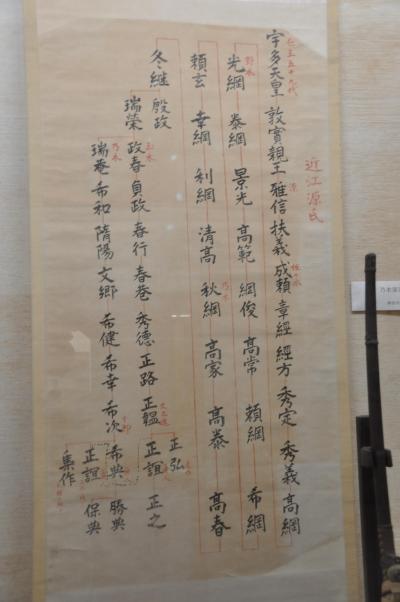 近江源氏
人王五十九代
宇多天皇 敦實親王 雅信 扶義 成頼 章經 經方 秀定 秀義 高綱
源
佐々木
光綱 泰綱 景光 高範 綱俊 高常 頼綱 希綱
野木
頼玄 幸綱 利綱 清高 秋綱 高家 高泰 高春
乃木
冬継 殷政
瑞榮 政春 貞政 春行 春巷 秀德 正路 正韞 正誼 正之
玉木
正弘
瑞巷 希和 隋陽 文郷 希健 希幸 希次 希典 勝典
乃木
正誼 保典
集作
乃木